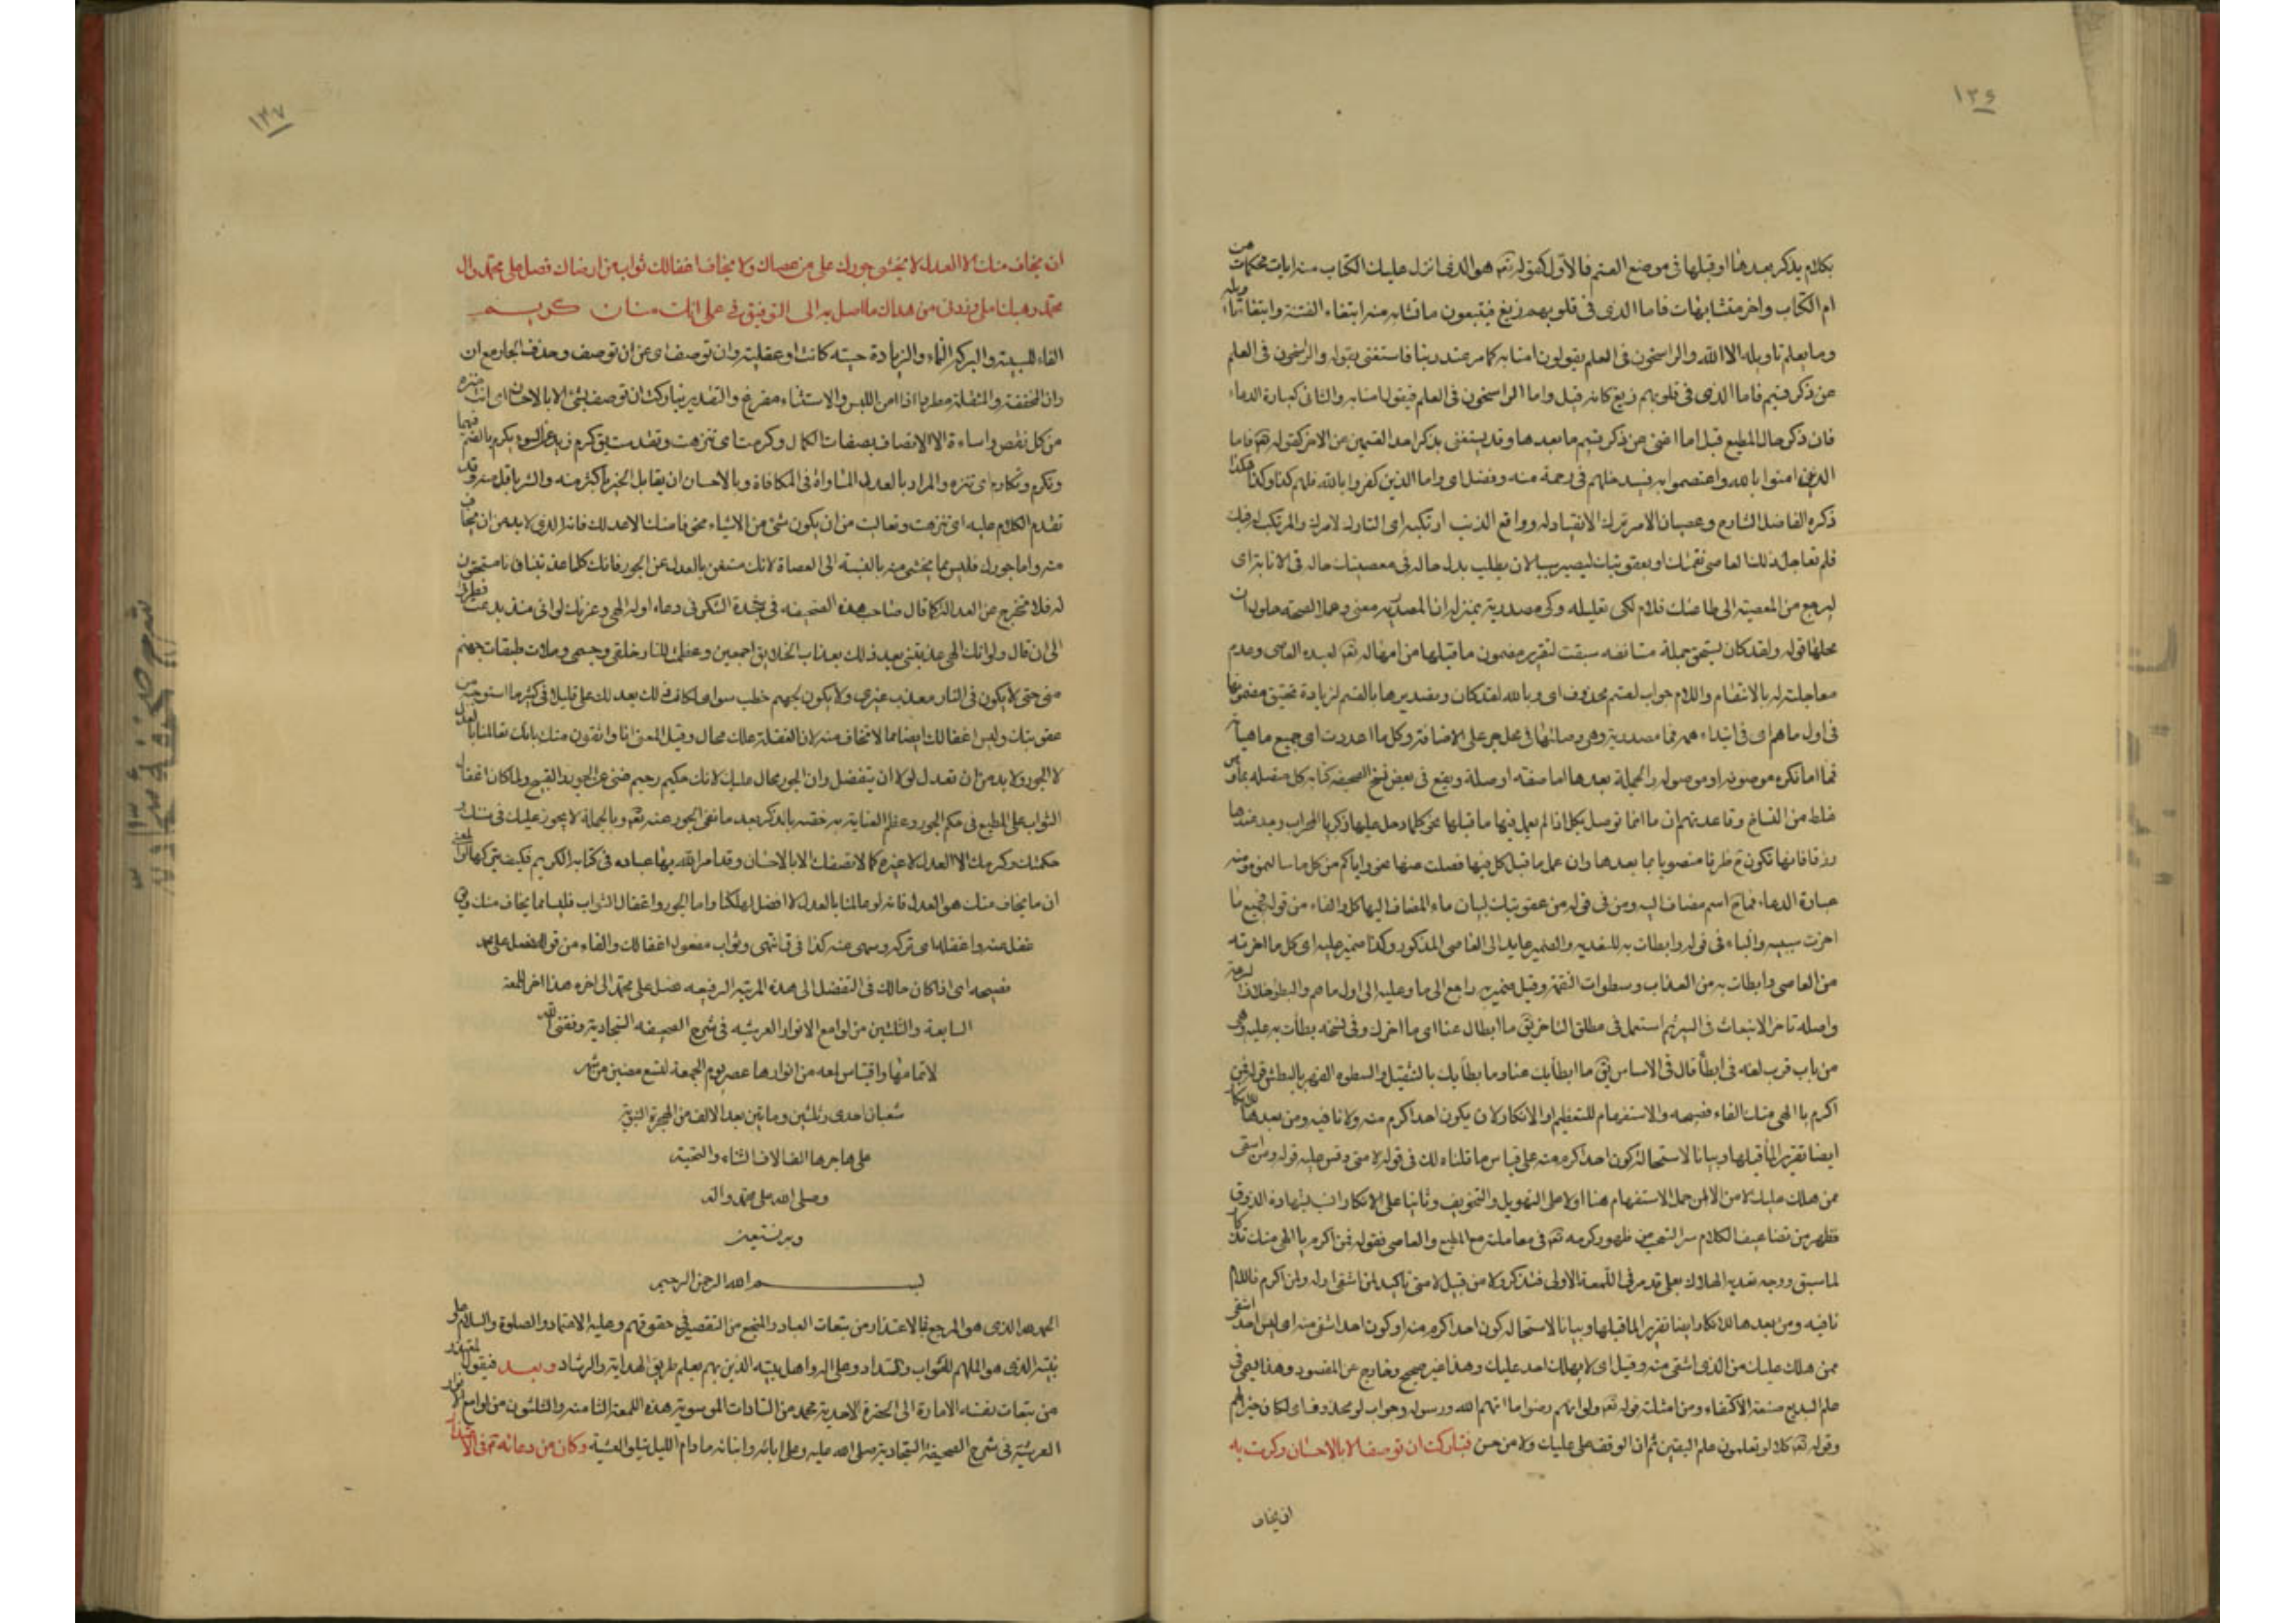 ١٣٦
بكلام يذكر بعدها او قبلها فى موضع القسم فالاول كقوله تعه هو الذى انزل عليك الكتاب منه ايات محكمات هن
ام الكتاب واخر متشابهات فاما الذى فى قلوبهم زيغ فيتبعون ما تشابه منه ابتغاء الفتنة وابتغاء تاويله
وما يعلم تاويله الا الله والراسخون فى العلم يقولون امنا به كل من عند ربنا فاستغنى بقوله والراسخون فى العلم
عن ذكر قسيم فاما الذى فى قلوبهم زيغ كانه قيل واما الراسخون فى العلم فيقولون امنا به والثانى كعبارة الدعاء
فان ذكر حال المطيع قبل اما اغنى عن ذكر قسيم ما بعدها وقد يستغنى بذكر احد القسمين عن الاخر كقوله تعه فاما
الذين امنوا بالله واعتصموا به فسيدخلهم فى رحمة منه وفضل اى واما الذين كفروا بالله فلهم كذا وكذا هكذا
ذكره الفاضل الشارح وعصيان الامر ترك الانقياد له وواقع الذنب ارتكبه اى التارك لامرك والمرتكب لذنبك
فلم تعاجل ذلك العاصى نقمتك او بعقوبتك ليصير سببا لان يطلب بدل حاله فى معصيتك حاله فى الانابة اى
ليرجع من المعصية الى طاعتك فلام لكى تعليلة وكى مصدرية بمنزلة ان المصدرية معنى وعملا لصحة حلول ان
محلها قوله ولقد كان يستحق جملة مستانفه سيقت لتقرير مضمون ما قبلها من امهاله تعه لعبده العاصى وعدم
معاجلته له بالانتقام واللام جواب لقسم محذوف اى وبالله لقد كان وتصديرها بالقسم لزيادة تحقيق مضمونها
فى اول ما هم اى فى ابتداء همه فما مصدرية وهى وصلتها فى محل جر على الاضافة وكل ما اعددت اى جميع ما هيات
فما اما نكرة موصوفه او موصوله والجملة بعدها اما صفة او صلة ويقع فى بعض نسخ الصحيفة كتابة كل متصله بما وهو
غلط من النساخ وقاعدتهم ان ما انما توصل بكل اذا لم يعمل فيها ما قبلها نحو كلما دخل عليها زكريا المحراب وجد عندها
رزقا فانها تكون ح ظرفا منصوبا بما بعدها وان عمل ما قبل كل فيها فصلت عنها نحو واتاكم من كل ما سالتموه ومنه
عبارة الدعاء فما ح اسم مضاف اليه ومن فى قوله من عقوبتك لبيان ماء المضاف اليها كل والفاء من قوله فجميع ما
اخرت سببيه والباء فى قوله وابطات به للتعديه والضمير عايد الى العاصى المذكور وكذا ضمير عليه اى كل ما اخرته
من العاصى وابطات به من العذاب وسطوات النقمة وقيل ضمير به راجع الى ما وعليه الى اول ما هم والبطؤ خلاف السرعة
واصله تاخر الانبعاث فى السير ثم استعمل فى مطلق التاخر يق ما ابطاك عنا اى ما اخرك وفى نسخه بطأت به عليه وهى
من باب قرب لغة فى ابطأ قال فى الاساس يق ما ابطأ بك عنا وما بطأ بك بالتثقيل والسطوه القهر بالبطش قوله فمن
اكرم يا الهى منك الفاء فصيحه والاستفهام للتعظيم او الانكار لان يكون احد اكرم منه ولا نافيه ومن بعدها للانكار
ايضا تقريرا لما قبلها وبيانا لاستحالة كون احد اكرم منه على قياس ما قلناه لك فى قوله لا متى وقس عليه قوله ومن اشقى
ممن هلك عليك لا من الا لمن جمل الاستفهام هنا اولا على التهويل والتخويف وثانيا على الانكار انسب بشهادة الذوق
فظهر من تضاعيف الكلام سر التعجب من ظهور كرمه تعه فى معاملته مع المطيع والعاصى فقوله فمن اكرم يا الهى منك تكرار
لما سبق ووجه تعديه الهلاك بعلى تقدم فى اللمعة الاولى فتذكر ولا من قبيل لا متى تاكيد لمن اشقى اوله ولمن اكرم فاللام
نافيه ومن بعدها للانكار ايضا تقريرا لما قبلها وبيانا لاستحالة كون احد اكرم منه او كون احد اشقى منه اى ليس احد اشقى
ممن هلك عليك من الذى اشقى منه وقيل اى لا يهلك احد عليك وهذا غير صحيح وخارج عن المقصود وهذا يسمى فى
علم البديع صنعة الاكتفاء ومن امثلته قوله تعه ولو انهم رضوا ما اتهم الله ورسوله وجواب لو محذوف اى لكان خيرا لهم
وقوله تعه كلا لو تعلمون علم اليقين ثم ان الوقف على عليك ولا من حسن فتباركت ان توصف الا بالاحسان وكرمت به
ان يخاف
١٣٧
ان يخاف منك الا العدل لا يخشى جورك على من عصاك ولا يخاف اغفالك ثواب من ارضاك فصل على محمد وال
محمد وهب لنا ملى وزدنى من هداك ما اصل به الى التوفيق فى عملى انك منان كريم
الفاء للسببية والبركة النماء والزيادة حسيه كانت او عقلية وان توصف اى عن ان توصف وحذف الجار مع ان
وان المخففة والمثقلة مطرد اذا امن اللبس والاستثناء مفرغ والتقدير تباركت ان توصف بشئ الا بالاحسان اى انت منزه
من كل نقص واساءة الا الاتصاف بصفات الكمال وكرمت اى تنزهت وتقدست يق كرم زيد عن السوء يكرم بالضم فيهما
وتكرم وتكارم اى تنزه والمراد بالعدل المساواة فى المكافاة وبالاحسان ان يقابل الخير باكثر منه والشر باقل منه وقد
تقدم الكلام عليه اى تنزهت وتعاليت من ان يكون شئ من الاشياء مخوفا منك الا عدلك فانه الذى لا بد من ان يخاف
منه واما جورك فليس مما يخشى منه بالنسبة الى العصاة لانك مستغن بالعدل عن الجور فانك كلما عذبتنا فانا مستحقون
له فلا تخرج عن العدل كما قال صاحب هذه الصحيفه فى سجدة الشكر فى دعاء اوله الهى وعزتك لو انى منذ بدعت فطرتى
الى ان قال ولو انك الهى عذبتنى بعد ذلك بعذاب الخلايق اجمعين وعظمت للنار خلقى وجسمى وملات طبقات جهنم
منى حتى لا يكون فى النار معذب غيرى ولا يكون لجهنم حطب سواى لكان ذلك بعدلك على قليلا فى كثير ما استوجبه من
عقوبتك وليس اغفالك ايضا مما لا تخاف منه لان الغفلة عليك محال وقيل المعنى انا واثقون منك بانك تعاملنا بالعدل
لا الجور ولا بد من ان تعدل لولا ان يتفضل وان الجور محال عليك لانك حكيم رحيم غنى عن الجور والقبيح ولما كان اغفال
الثواب على المطيع فى حكم الجور وعظم العناية به خصه بالذكر بعد ما نفى الجور عنه تعه وبالجملة لا يجوز عليك فى سنتك و
حكمتك وكرمك الا العدل لا غيره كما لا تصفك الا بالاحسان وقد امر الله بهما عباده فى كتابه الكريم فكيف يتركهما والمعنى
ان ما يخاف منك هو العدل فانه لو عاملنا بالعدل لا افضل لهلكنا واما الجور واغفال الثواب فليسا مما يخاف منك وفى
غفل عنه واغفله اى تركه وسهى عنه كذا فى ق انتهى وثواب مفعول اغفالك والفاء من قوله فصل على محمد
فصيحه اى اذا كان حالك فى التفضل الى هذه المرتبه الرفيعه فصل على محمد الى اخره هذا اخر اللمعة
السابعة والثلثين من لوامع الانوار العرشيه فى شرح الصحيفه السجادية وفقنى الله
لاتمامها واقتباس لمعه من انوارها عصر يوم الجمعة لتسع مضين من شهر
شعبان احدى وثلثين وماتين بعد الالف من الهجرة النبوية
على هاجرها الف الاف الثناء والتحية
وصلى الله على محمد واله
وبه نستعين
بسم الله الرحمن الرحيم
الحمد لله الذى هو المرجع فى الاعتذار من تبعات العباد والمنجع من التقصير فى حقوقهم وعليه الاعتماد والصلوة والسلام على
نبيه الذى هو الملهم للثواب والسداد وعلى اله واهل بيته الذين بهم يعلم طريق الهداية والرشاد وبعد فيقول المعتذر
من تبعات نفسه الامارة الى الحضرة الاحدية محمد من السادات الموسوية هذه اللمعة الثامنة والثلثون من لوامع الانوار
العرشية فى شرح الصحيفة السجادية صلى الله عليه وعلى ابائه وابنائه ما دام الليل يتلو العشية وكان من دعائه ع فى الاعتذار